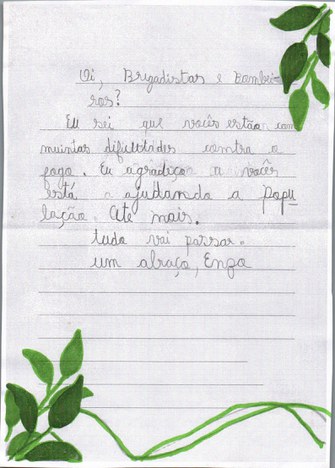 Oi, Brigadistas e Bombei
ros?
Eu sei que vocês estão com
muintas dificultades contra o
fogo. Eu agradiço a vocês
está a ajudando a popu
lação. Até mais.
tudo vai passar.
um abraço, Enzo